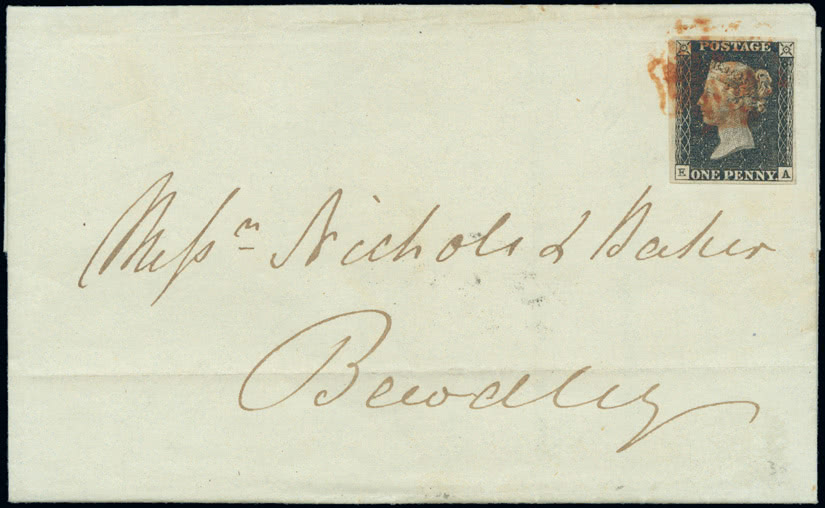 POSTAGE
E ONE PENNY A
Messrs Nichols & Baker
Bewdley